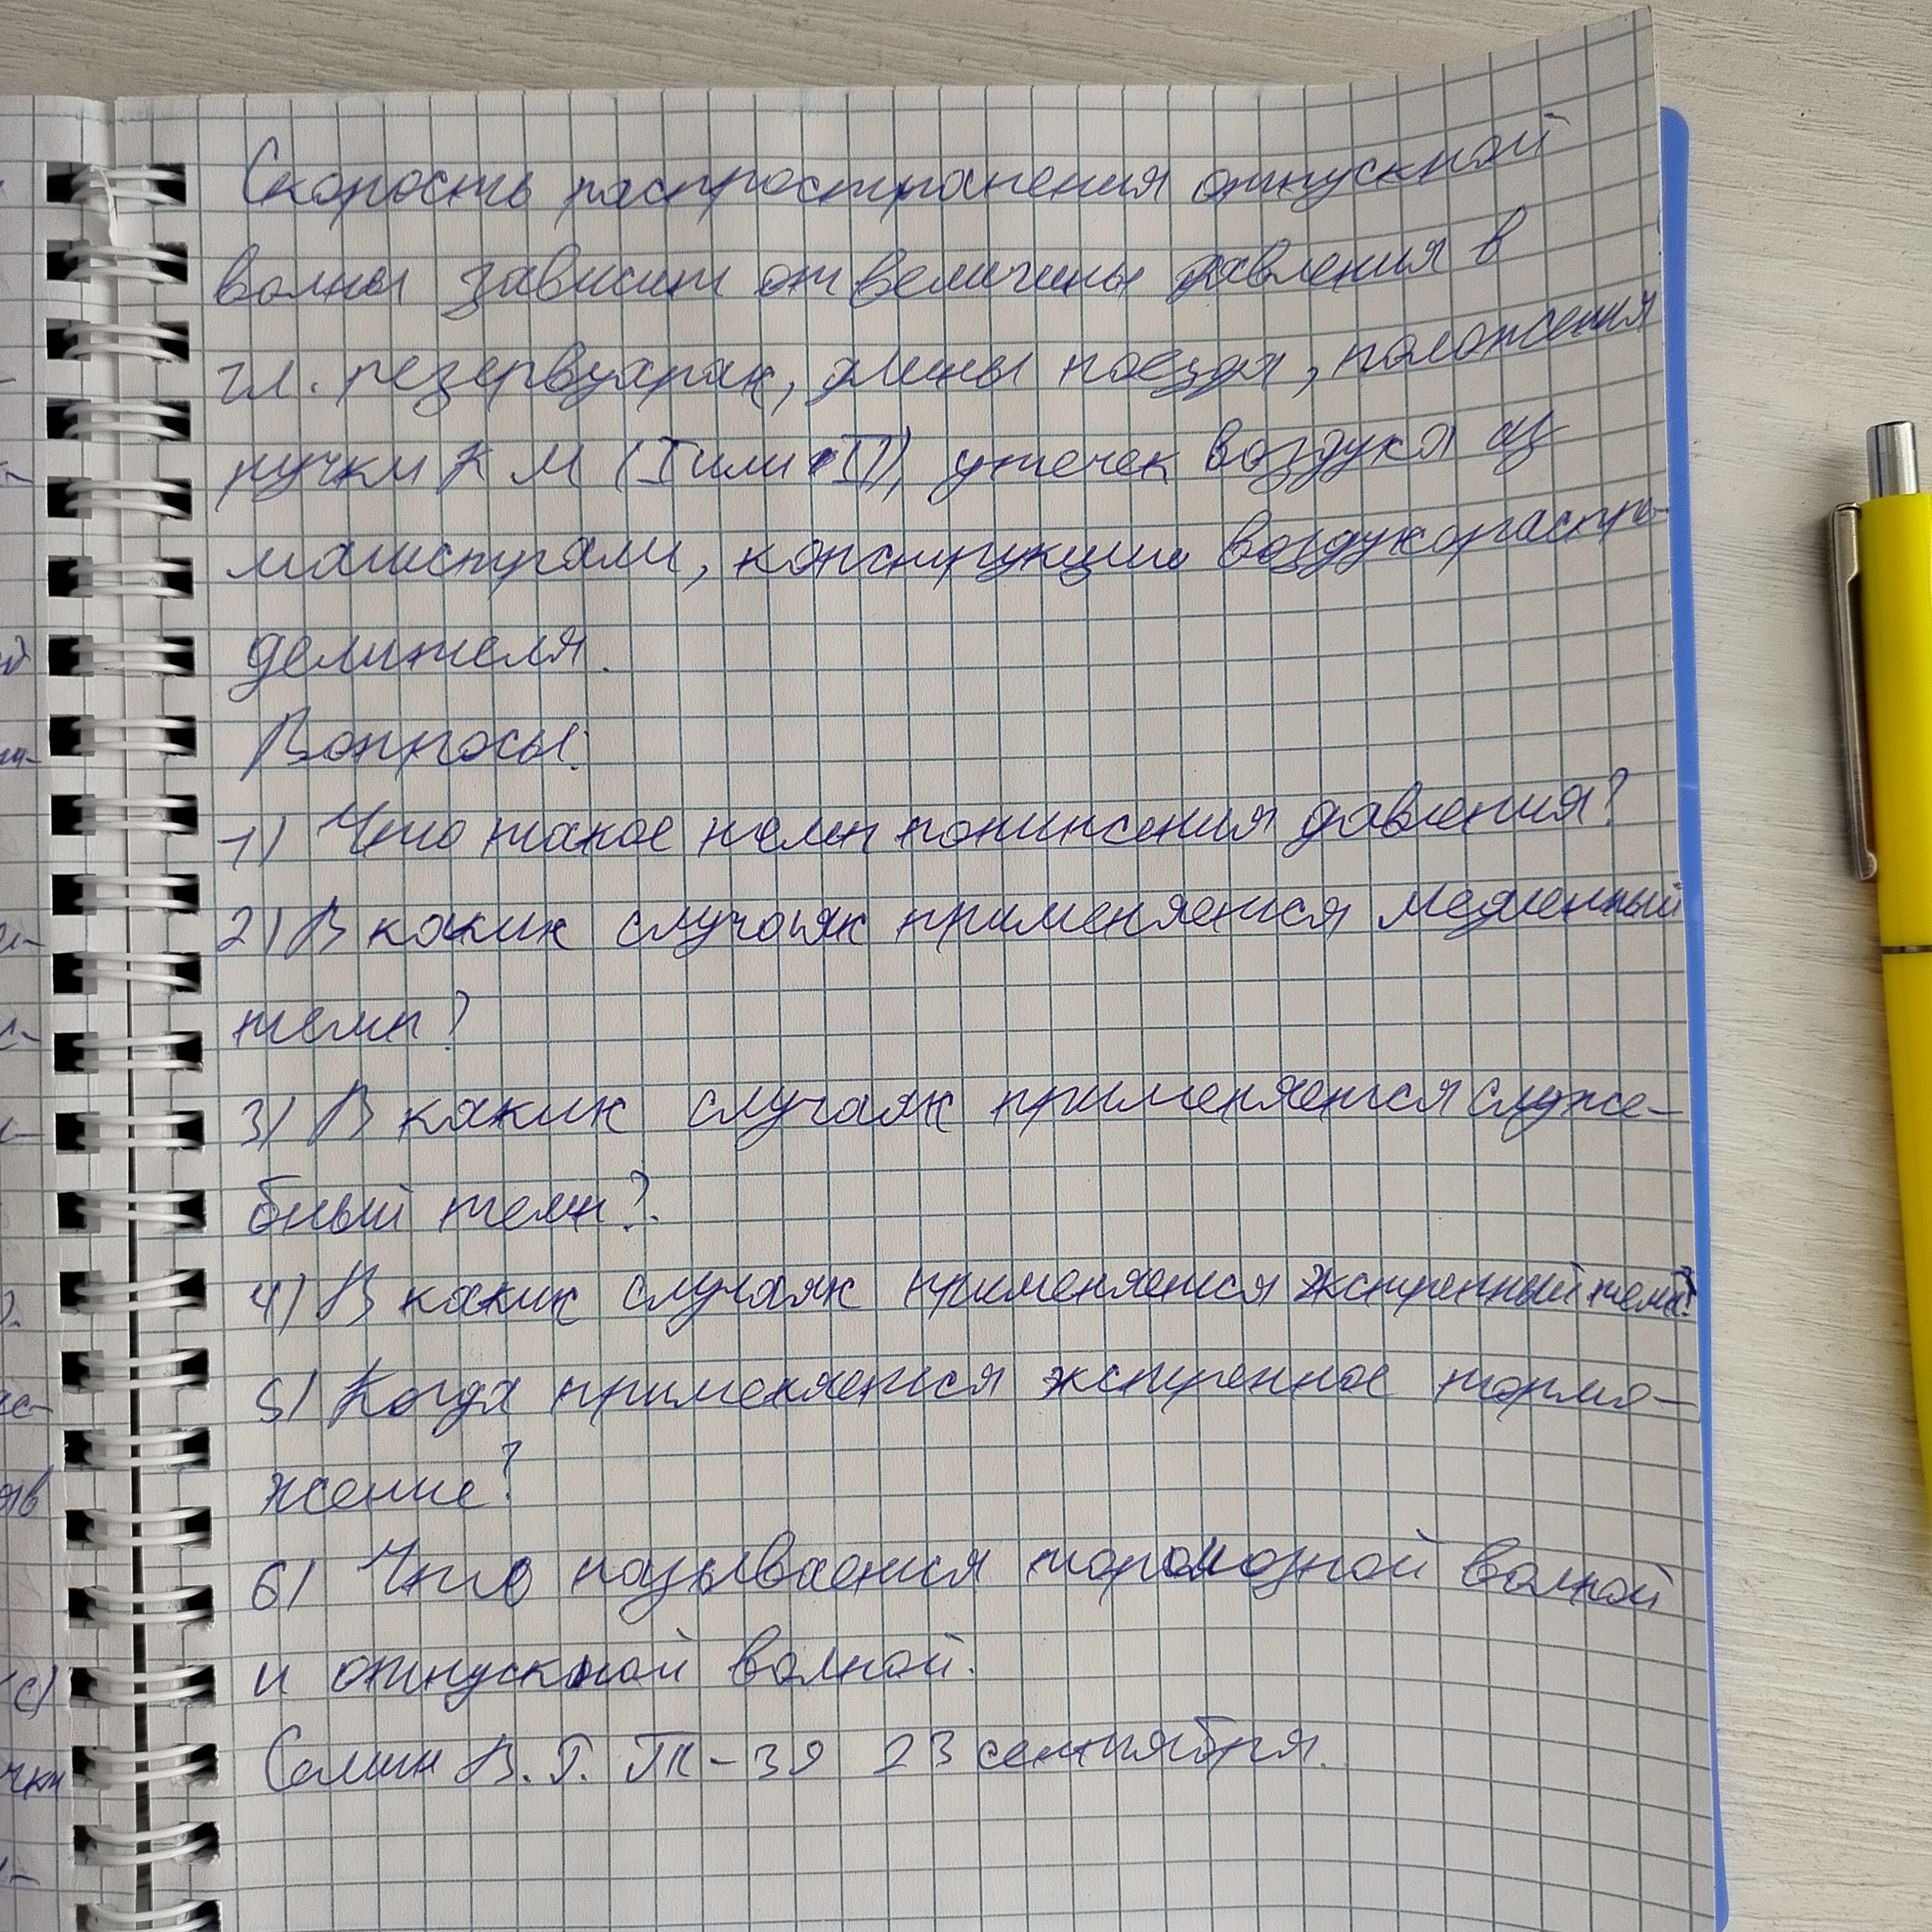 Скорость распространения отпускной
волны зависит от величины давления в
гл. резервуарах, длины поезда, положения
ручки КМ (I или II), утечек воздуха из
магистрали, конструкции воздухораспре-
делителя.
Вопросы:
1) Что такое темп понижения давления?
2) В каких случаях применяется медленный
темп?
3) В каких случаях применяется служе-
бный темп?
4) В каких случаях применяется экстренный темп?
5) Когда применяется экстренное тормо-
жение?
6) Что называется тормозной волной
и отпускной волной.
В.Г. 23 сентября.